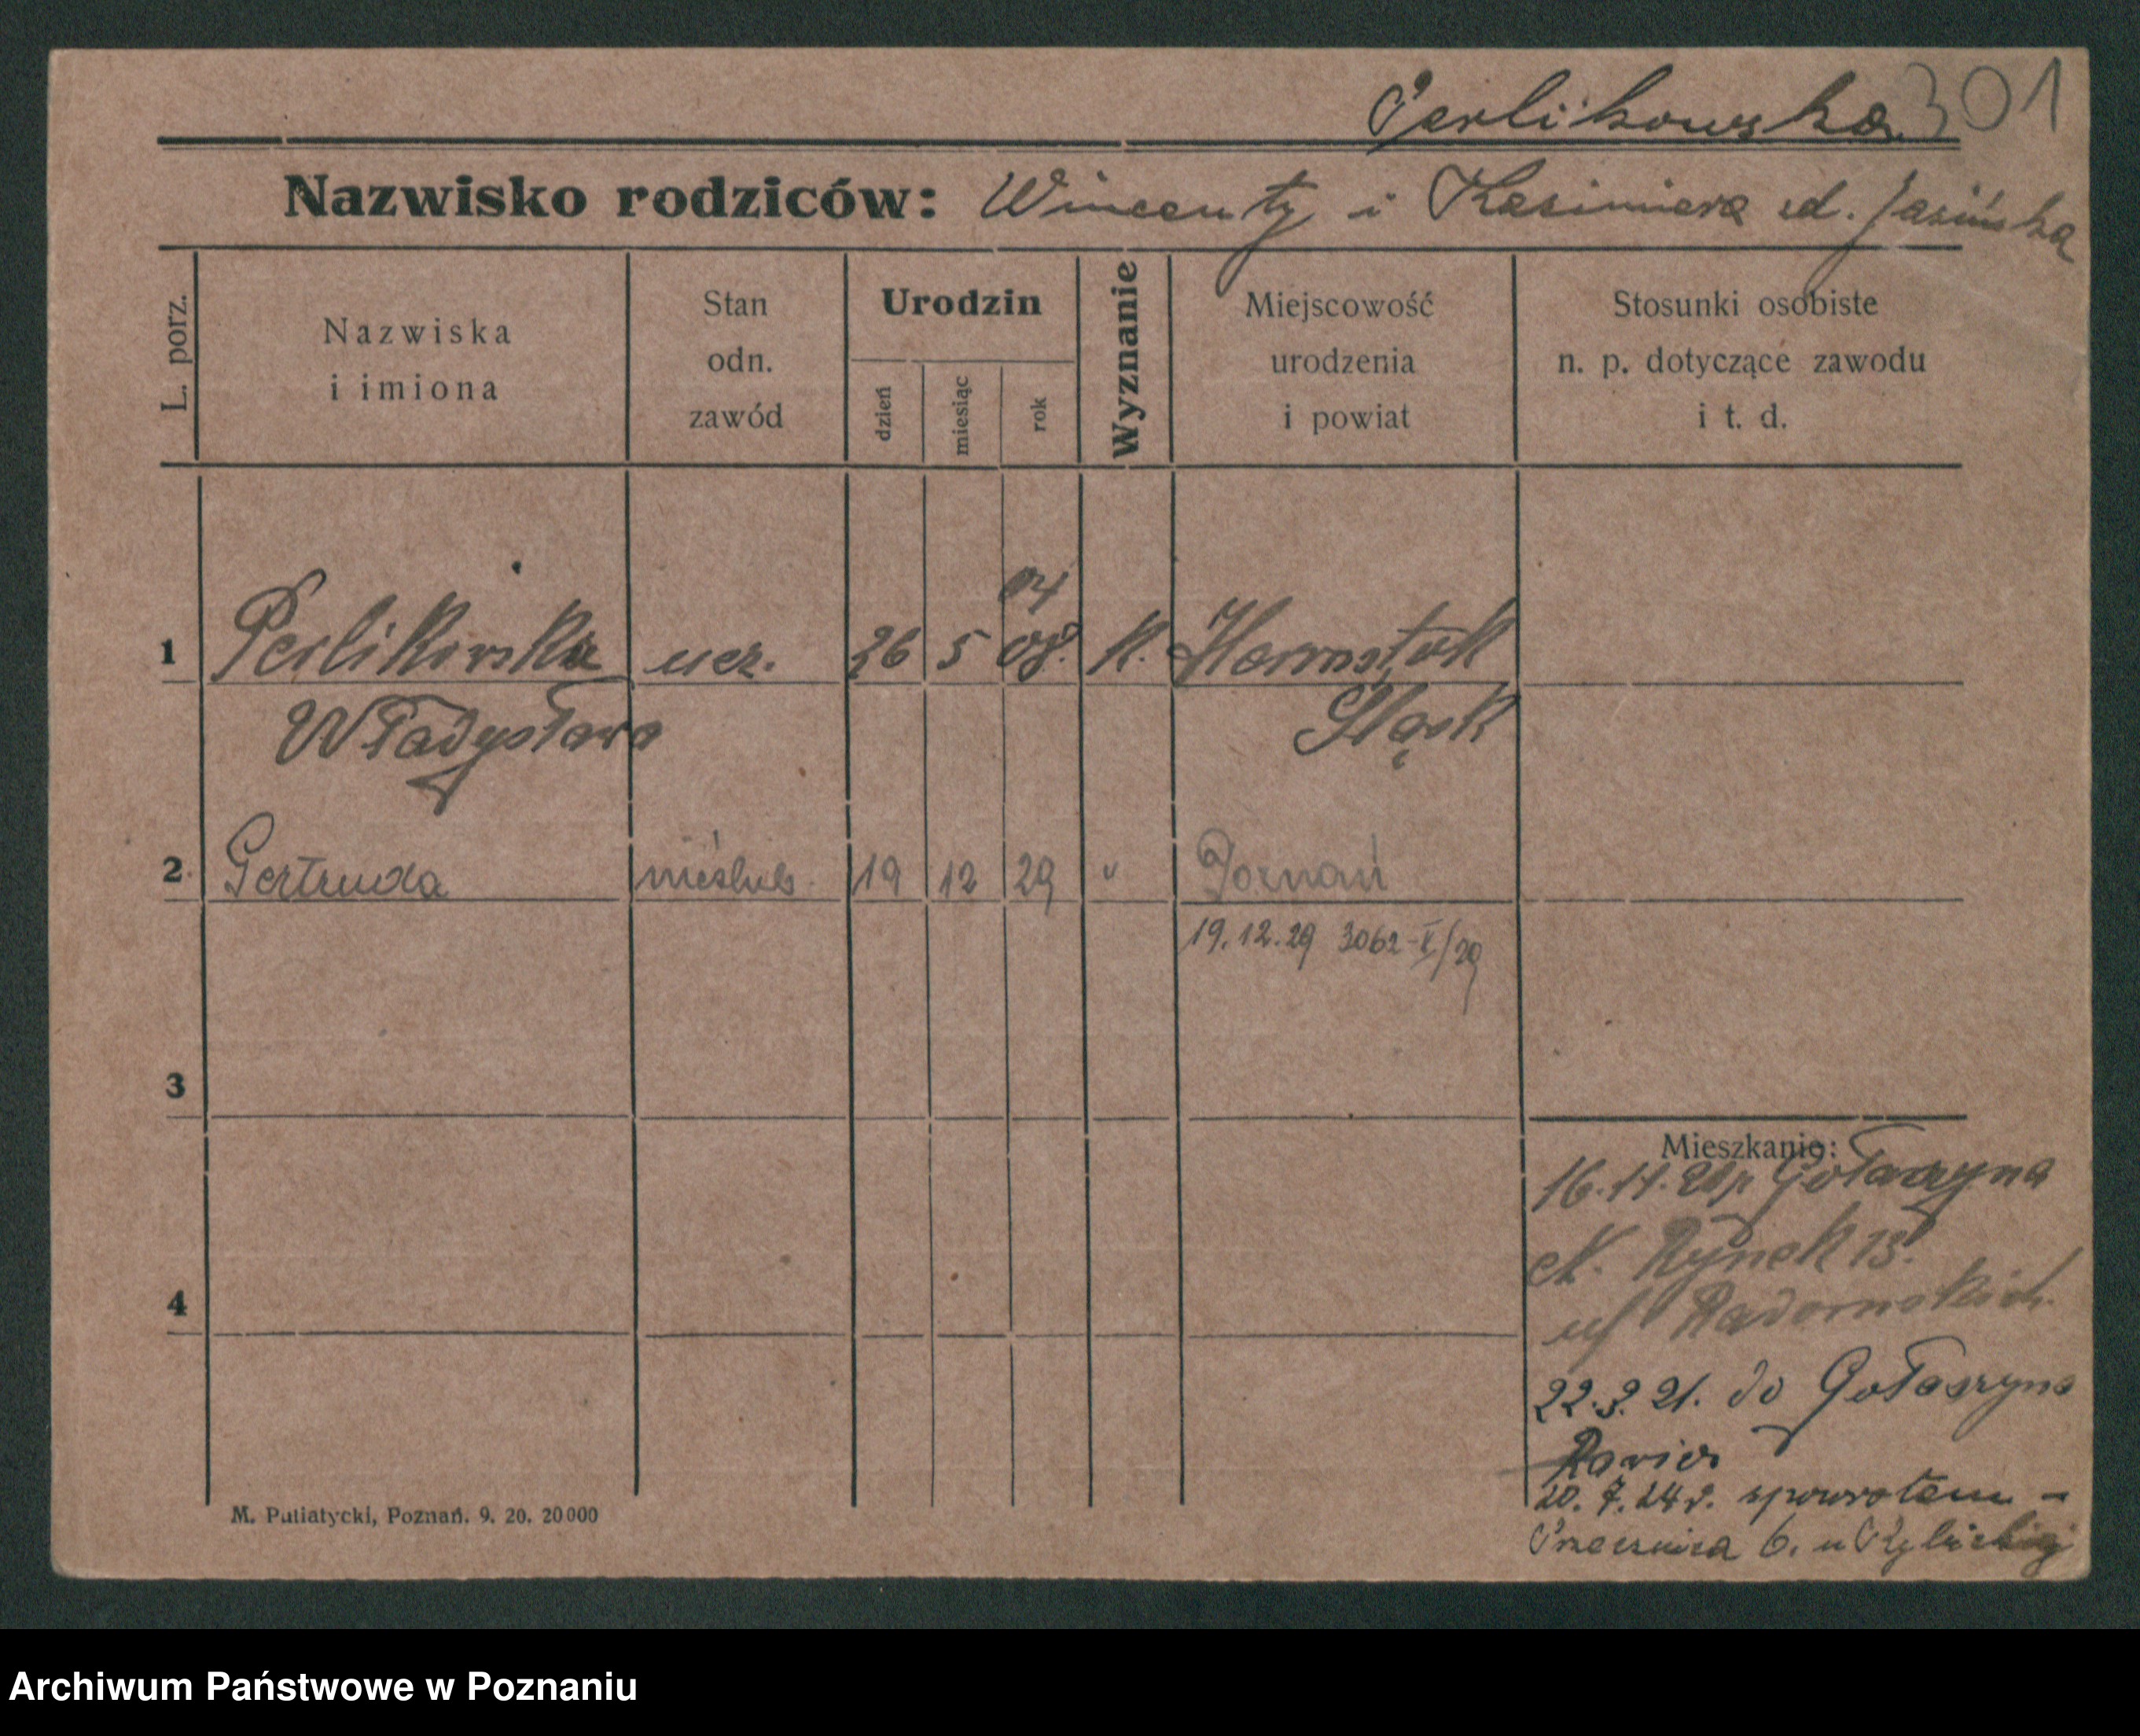 Perlikowska 301
Nazwisko rodziców: Wincenty i Kazimiera zd. Jasińska
L. porz.
Nazwiska
i imiona
Stan
odn.
zawód
Urodzin
dzień
miesiąc
rok
Wyznanie
Miejscowość
urodzenia
i powiat
Stosunki osobiste
n. p. dotyczące zawodu
i t. d.
04
1 Perlikowska ucz. 26 5 08. K.
Władysława Śląsk
2 Gertruda nieślub. 19 12 29 " Poznań
19.12.29 3062-V/29
3
Mieszkanie:
16.11. Gołaszyna
4
N. Rynek 13.
Radomskich
22.3.21. do Gołaszyna
Rawicz
20.7.24r. spowrotem -
Przecznica 6. u
M. Putiatycki, Poznań. 9. 20. 20000
Archiwum Państwowe w Poznaniu